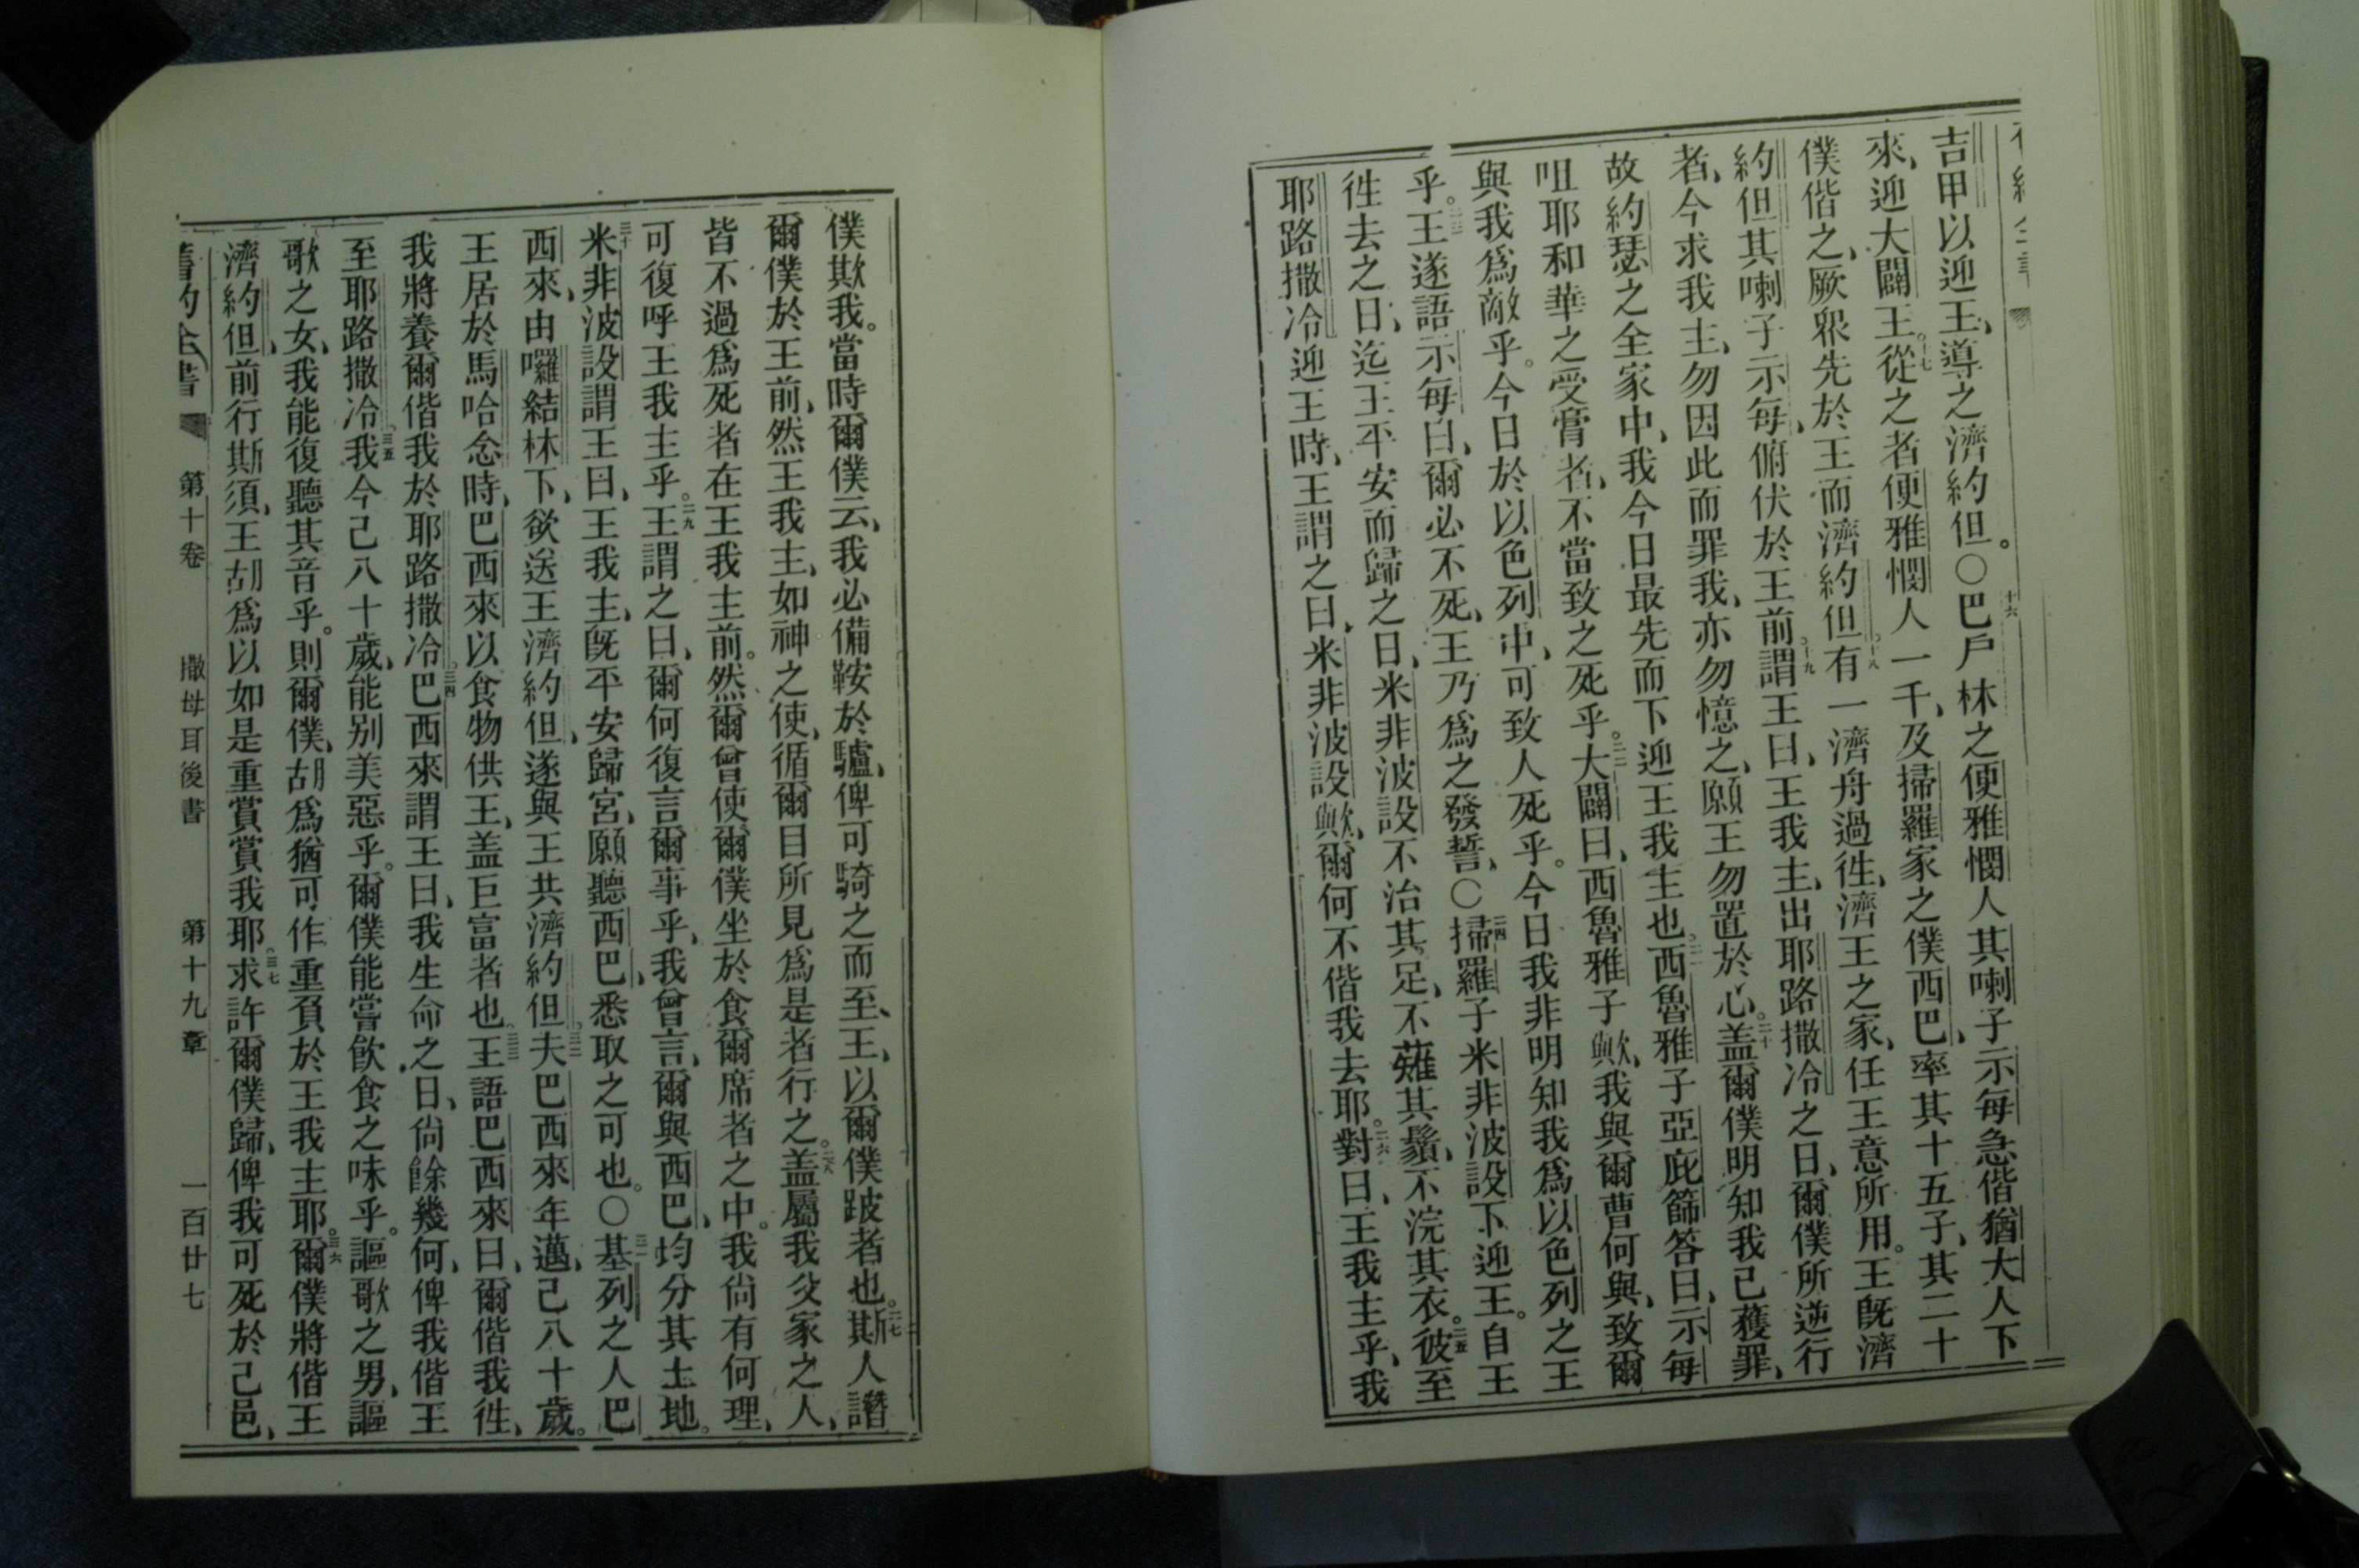 吉甲以迎王、導之濟約但。〇十六巴戶林之便雅憫人其喇子示每急偕猶大人下
來、迎大闢王。十七從之者便雅憫人一千、及掃羅家之僕西巴、率其十五子、其二十
僕偕之、厥眾先於王而濟約但。十八有一濟舟過徃、濟王之家、任王意所用。王旣濟
約但其喇子示每、俯伏於王前。十九謂王曰、王我主、出耶路撒冷之日、爾僕所逆行
者、今求我主、勿因此而罪我、亦勿憶之、願王勿置於心。二十盖爾僕明知我己獲罪、
故約瑟之全家中、我今日最先而下迎王我主也。二一西魯雅子亞庇篩答曰、示每
咀耶和華之受膏者、不當致之死乎。二二大闢曰、西魯雅子歟、我與爾曹何與、致爾
與我爲敵乎。今日於以色列中、可致人死乎。今日我非明知我爲以色列之王
乎。二三王遂語示每曰、爾必不死、王乃爲之發誓、〇二四掃羅子米非波設下迎王。自王
徃去之日、迄王平安而歸之日、米非波設不治其足、不薙其鬚、不浣其衣。二五彼至
耶路撒冷迎王時、王謂之曰、米非波設歟、爾何不偕我去耶。二六對曰、王我主乎、我
僕欺我。當時爾僕云、我必備鞍於驢、俾可騎之而至、王、以爾僕跛者也。二七斯人譖
爾僕於王前、然王我主、如神之使、循爾目所見爲是者行之。二八盖屬我父家之人、
皆不過爲死者在王我主前。然爾曾使爾僕坐於食爾席者之中。我尙有何理、
可復呼王我主乎。二九王謂之曰、爾何復言爾事乎、我曾言、爾與西巴、均分其土地。
三十米非波設謂王曰、王我主、旣平安歸宮、願聽西巴、悉取之可也。〇三一基列之人巴
西來、由囉結林下、欲送王濟約但、遂與王共濟約但。三二夫巴西來年邁、己八十歲。
王居於馬哈念時、巴西來以食物供王、盖巨富者也。三三王語巴西來曰、爾偕我徃、
我將養爾偕我於耶路撒冷。三四巴西來謂王曰、我生命之日、尙餘幾何、俾我偕王
至耶路撒冷。三五我今己八十歲、能别美惡乎。爾僕能嘗飲食之味乎。謳歌之男、謳
歌之女、我能復聽其音乎。則爾僕、胡爲猶可作重負於王我主耶。三六爾僕將偕王
濟約但、前行斯須、王胡爲以如是重賞賞我耶。三七求許爾僕歸、俾我可死於己邑、
舊約全書 第十卷 撒母耳後書 第十九章 一百廿七